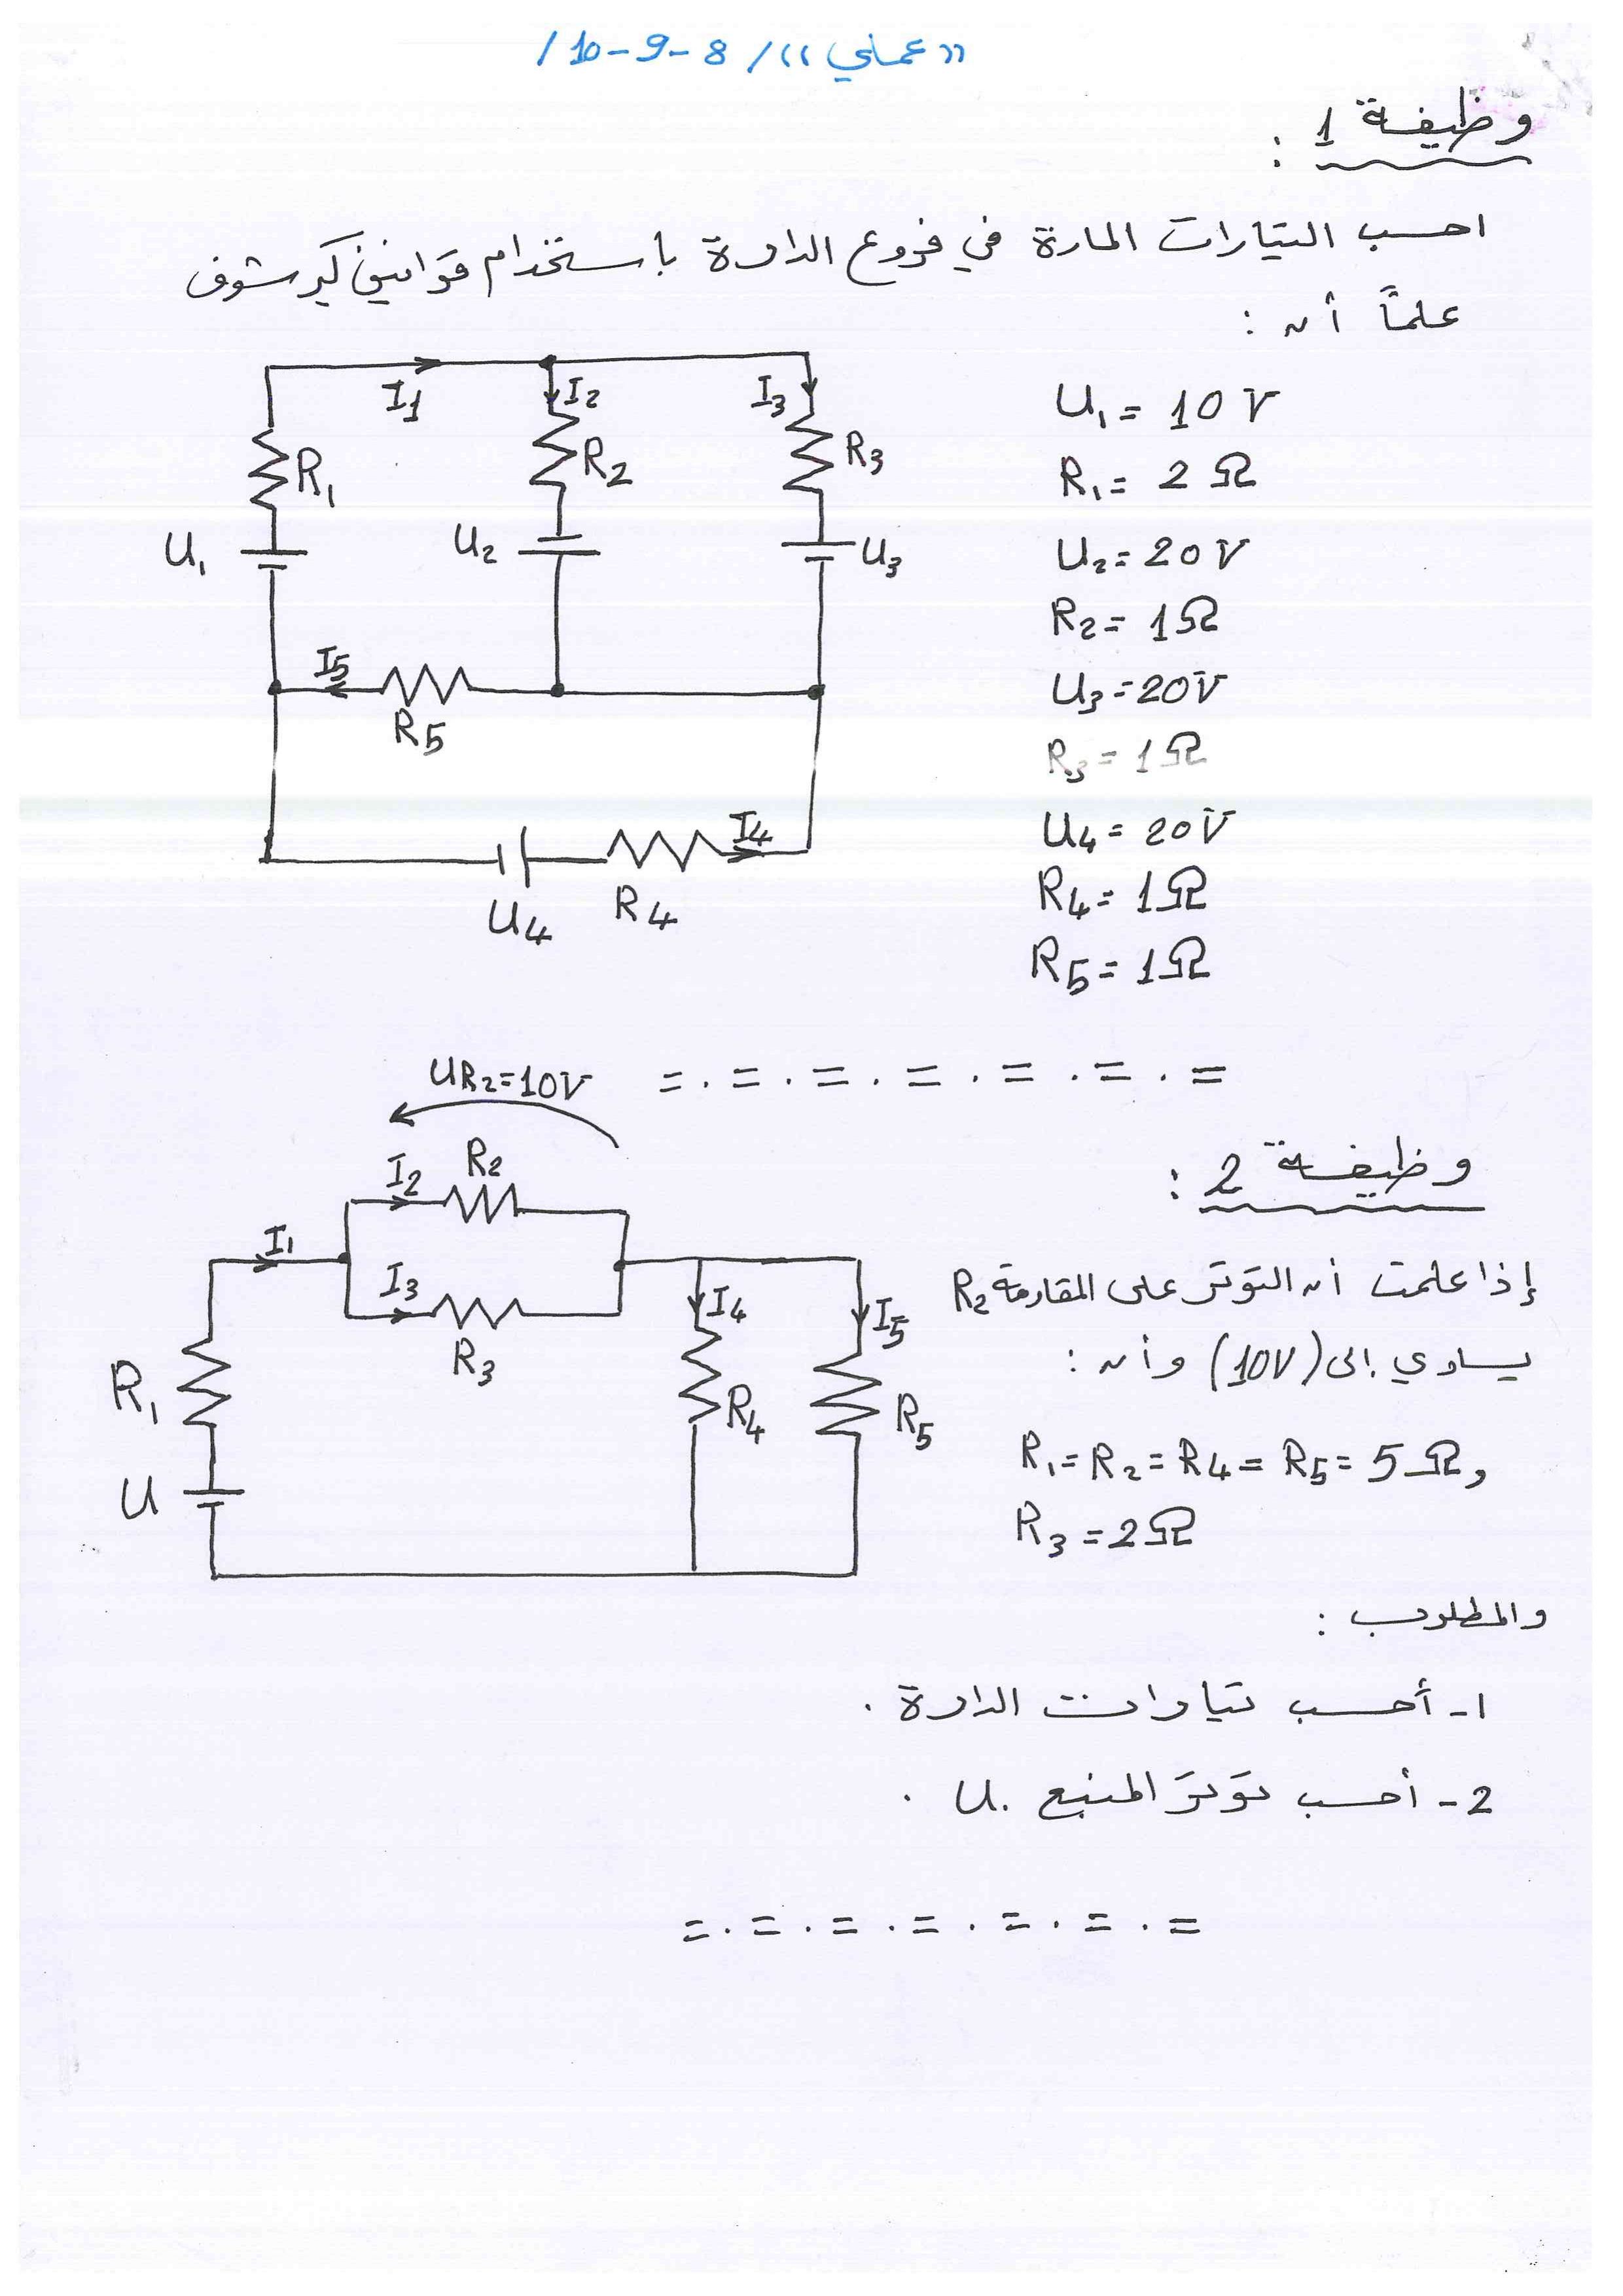 «عملي» /8-9-10/
وظيفة 1 :
احسب التيارات المارة في فروع الدارة باستخدام قوانين كيرشوف
علماً أن :
I1
I2
I3
R1
R2
R3
U1
U2
U3
I5
R5
I4
U4
R4
U1 = 10 V
R1 = 2 Ω
U2 = 20 V
R2 = 1Ω
U3 = 20V
R3 = 1Ω
U4 = 20V
R4 = 1Ω
R5 = 1Ω
= . = . = . = . = . = . =
وظيفة 2 :
UR2=10V
I1
I2
R2
I3
R3
I4
I5
R1
R4
R5
U
إذا علمت أن التوتر على المقاومة R2
يساوي إلى (10V) وأن :
R1 = R2 = R4 = R5 = 5 Ω,
R3 = 2Ω
والمطلوب :
1- أحسب تيارات الدارة .
2- أحسب توتر المنبع U. .
= . = . = . = . = . = . =